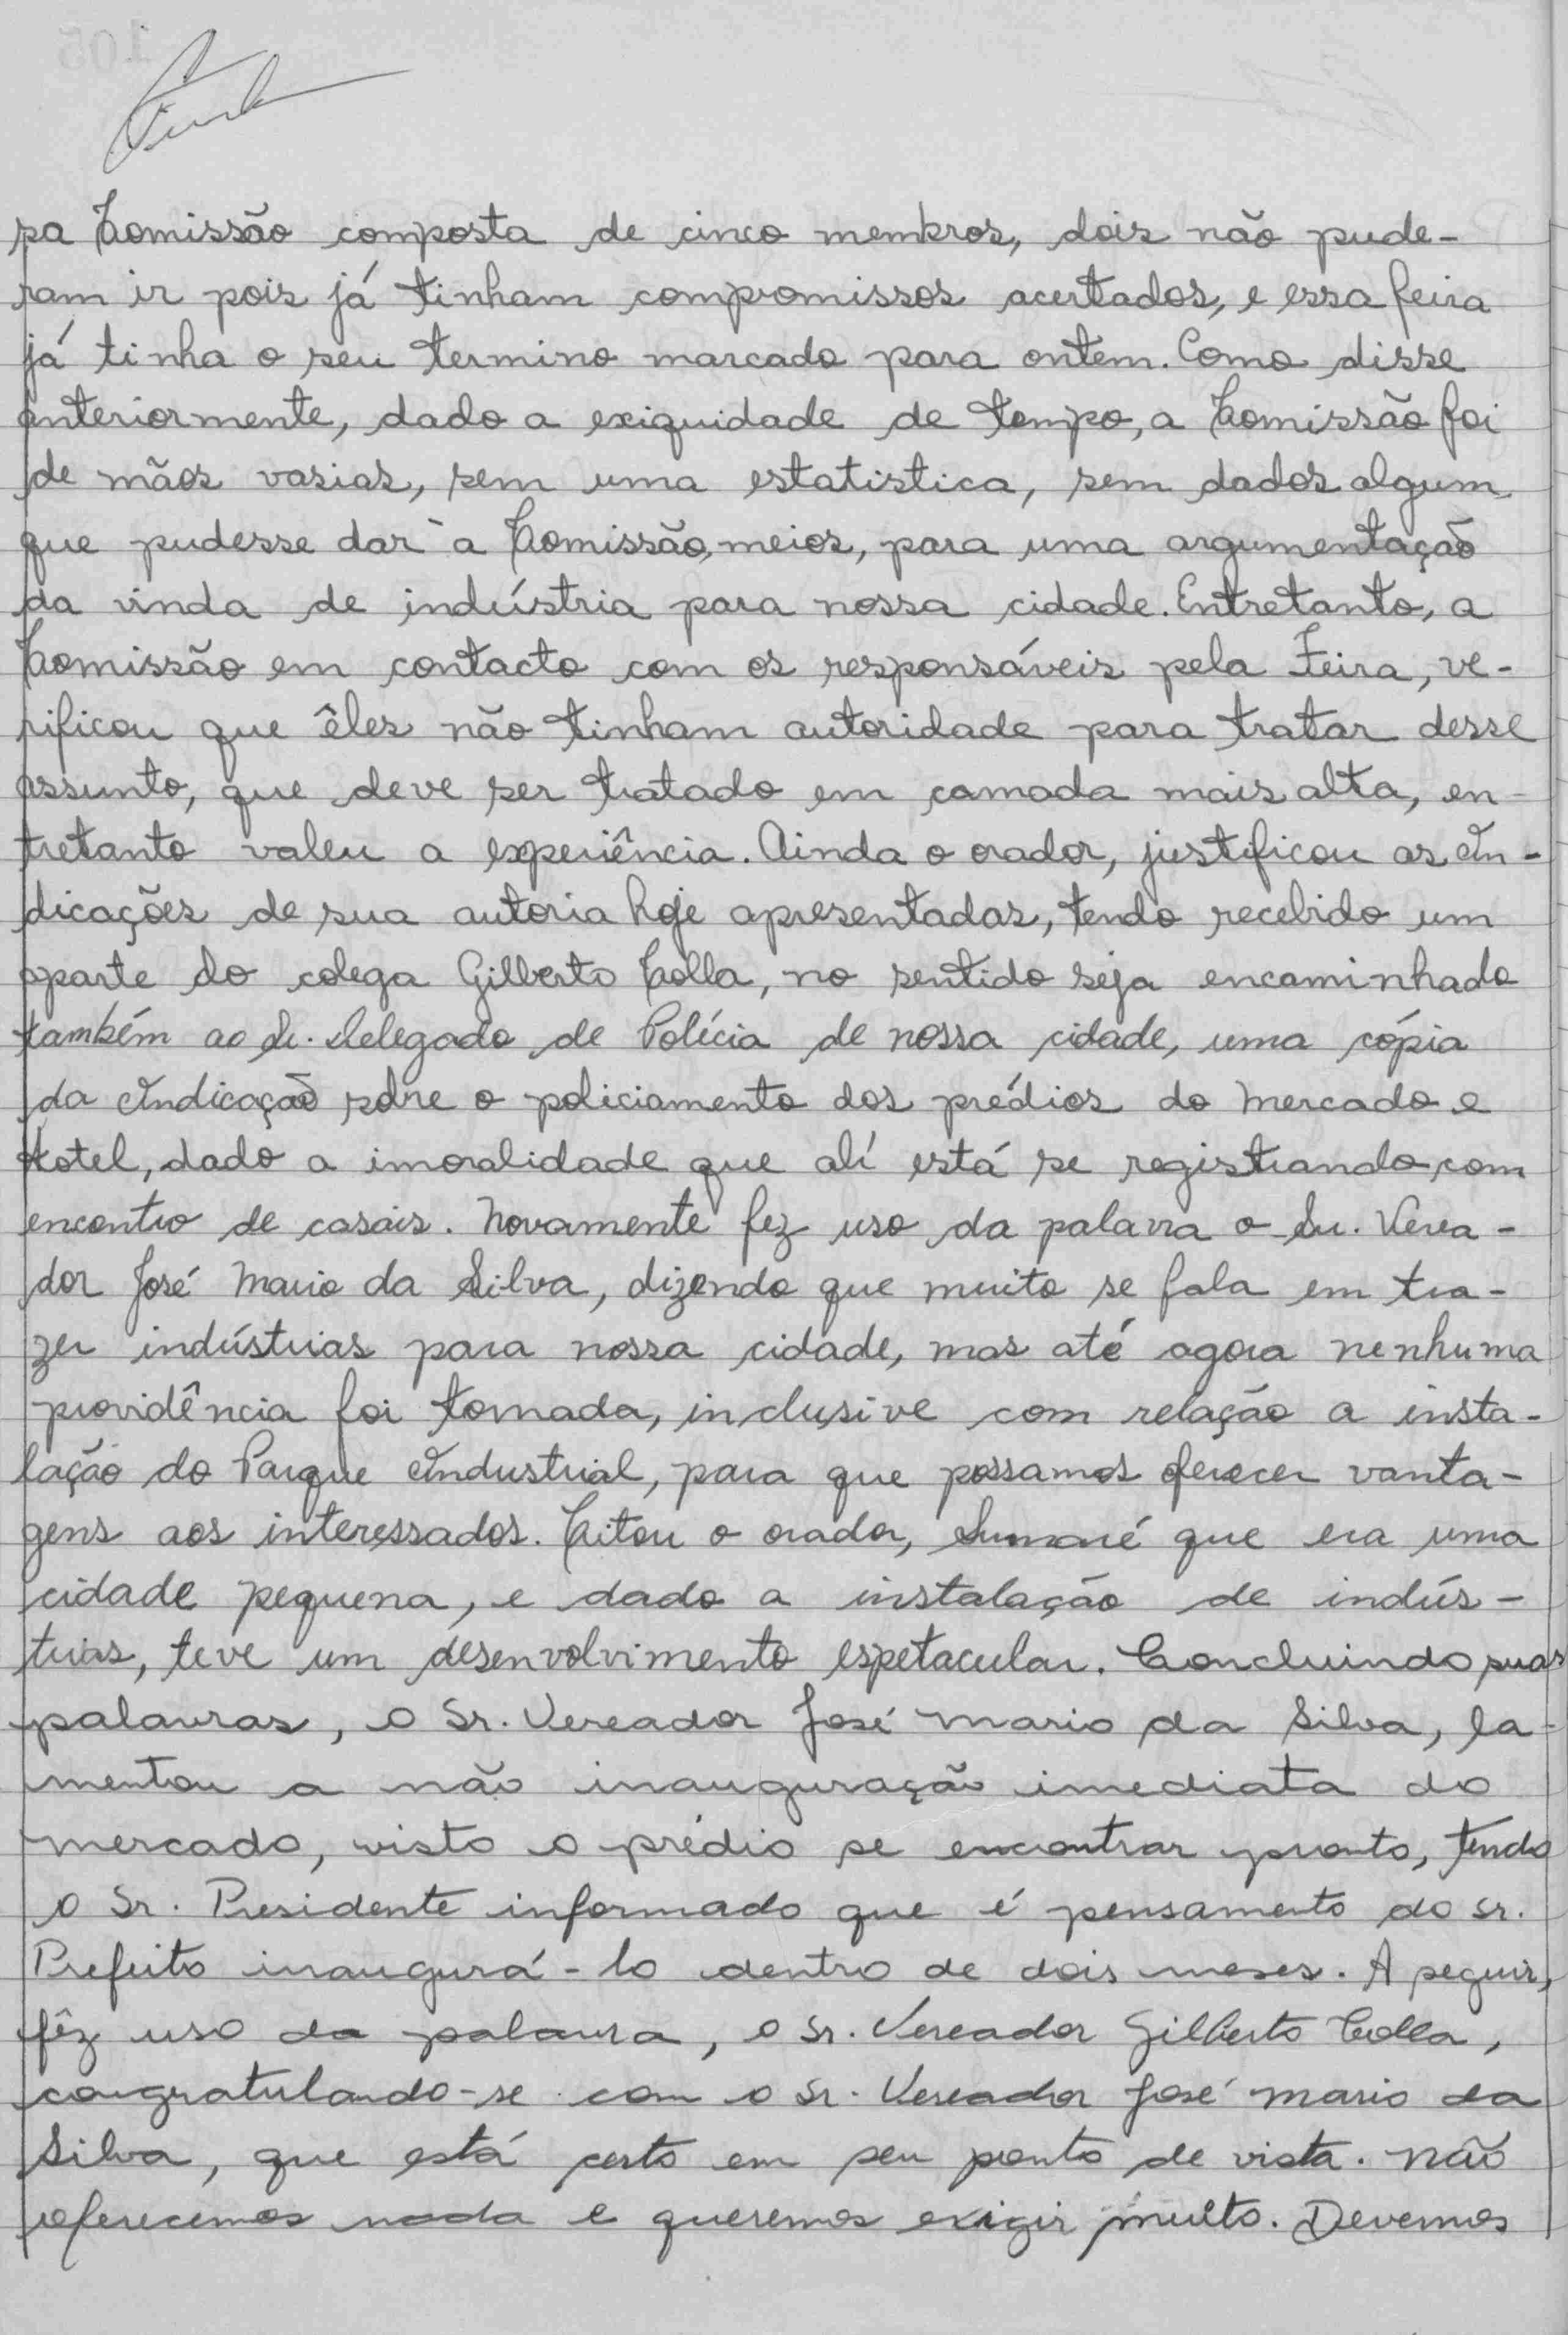 sa Comissão composta de cinco membros, dois não pude-
ram ir pois já tinham compromissos acertados, e essa feira
já tinha o seu termino marcado para ontem. Como disse
anteriormente, dado a exiquidade de tempo, a Comissão foi
de mãos vasias, sem uma estatistica, sem dados algum
que pudesse dar à Comissão, meios, para uma argumentação
da vinda de indústria para nossa cidade. Entretanto, a
Comissão em contacto com os responsáveis pela Feira, ve-
rificou que êles não tinham autoridade para tratar desse
assunto, que deve ser tratado em camada mais alta, en-
tretanto valeu a experiência. Ainda o orador, justificou as In-
dicações de sua autoria hoje apresentadas, tendo recebido um
aparte do colega Gilberto Colla, no sentido seja encaminhado
também ao Sr. Delegado de Polícia de nossa cidade, uma cópia
da Indicação sobre o policiamento dos prédios do Mercado e
Hotel, dado a imoralidade que alí está se registrando com
encontro de casais. Novamente fez uso da palavra o Sr. Verea-
dor José Mario da Silva, dizendo que muito se fala em tra-
zer indústrias para nossa cidade, mas até agora nenhuma
providência foi tomada, inclusive com relação a insta-
lação do Parque Industrial, para que possamos oferecer vanta-
gens aos interessados. Citou o orador, Sumaré que era uma
cidade pequena, e dado a instalação de indús-
trias, teve um desenvolvimento espetacular. Concluindo suas
palavras, o Sr. Vereador José Mario da Silva, la-
mentou a não inauguração imediata do
mercado, visto o prédio se encontrar pronto, tendo
o Sr. Presidente informado que é pensamento do Sr.
Prefeito inaugurá-lo dentro de dois meses. A seguir,
fêz uso da palavra, o Sr. Vereador Gilberto Colla,
congratulando-se com o Sr. Vereador José Mario da
Silva, que está certo em seu ponto de vista. Não
oferecemos nada e queremos exigir muito. Devemos